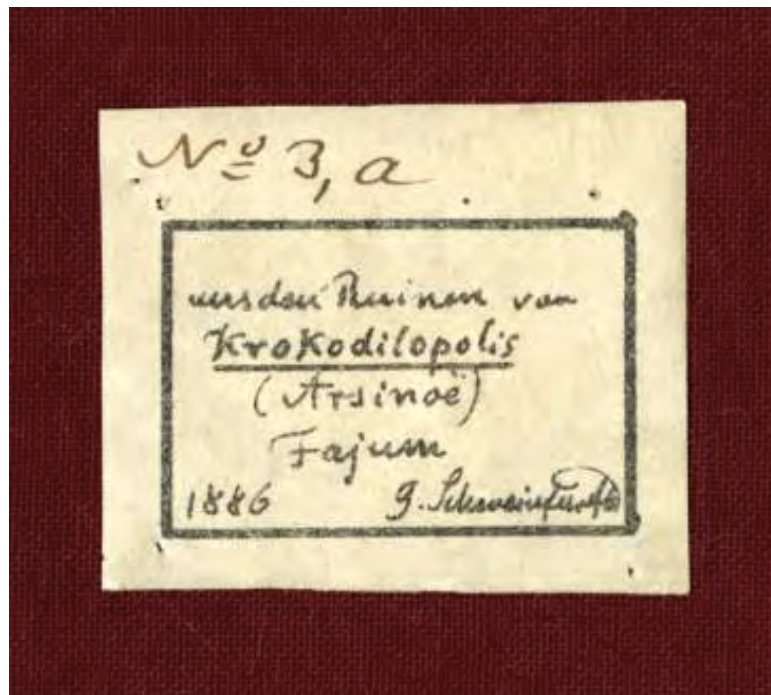 Nº 3, a
aus den Ruinen von
Krokodilopolis
(Arsinoë)
Fajum
1886 G. Schweinfurth